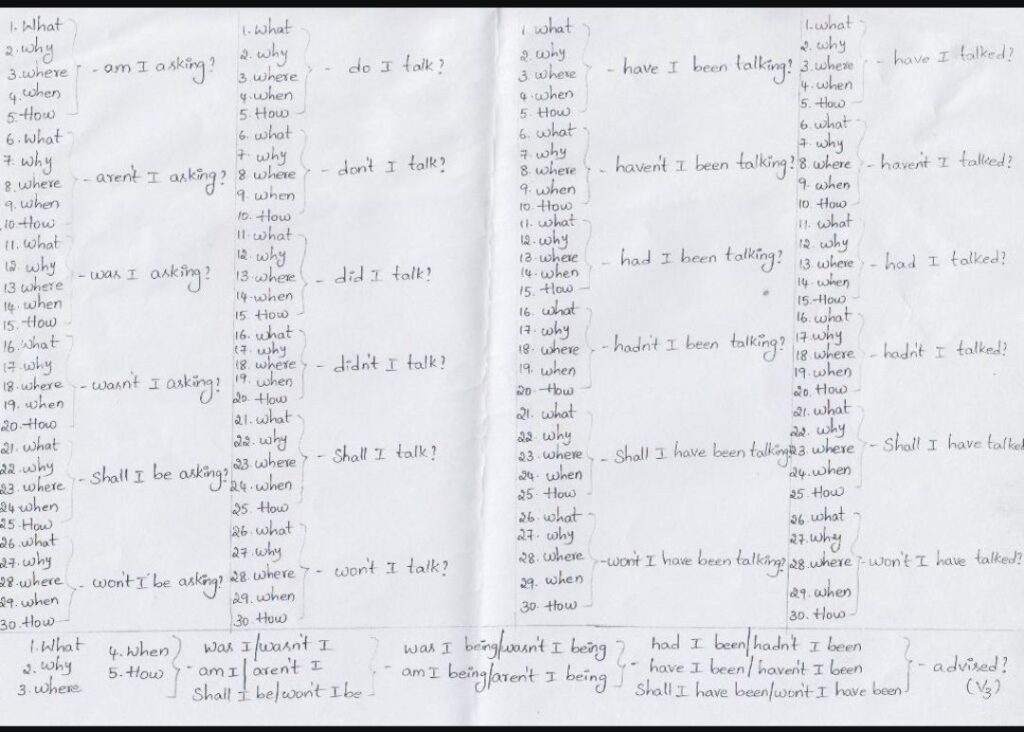 1. What
2. why
3. where
4. when
5. How
- am I asking?
6. what
7. why
8. where
9. when
10. How
- aren't I asking?
11. what
12. why
13 where
14. when
15. How
- was I asking?
16. what
17. why
18. where
19. when
20. How
- wasn't I asking?
21. what
22. why
23. where
24 when
25. How
- Shall I be asking?
26. what
27. why
28. where
29. when
30. How
- won't I be asking?
1. what
2. why
3. where
4. when
5. How
- do I talk?
6. what
7. why
8. where
9. when
10. How
- don't I talk?
11. what
12. why
13 where
14. when
15. How
- did I talk?
16. what
17. why
18. where
19. when
20. How
- didn't I talk?
21. what
22. why
23. where
24. when
25. How
- Shall I talk?
26. what
27. why
28. where
29. when
30. How
- won't I talk?
1. what
2. why
3. where
4. when
5. How
- have I been talking?
6. what
7. why
8. where
9. when
10. How
- haven't I been talking?
11. what
12. why
13. where
14. when
15. How
- had I been talking?
16. what
17. why
18. where
19. when
20. How
- hadn't I been talking?
21. what
22. why
23. where
24. when
25. How
- Shall I have been talking
26. what
27. why
28. where
29. when
30. How
- won't I have been talking?
1. what
2. why
3. where
4. when
5. How
- have I talked?
6. what
7. why
8 where
9. when
10. How
- haven't I talked?
11. what
12. why
13 where
14. when
15. How
- had I talked?
16. what
17. why
18. where
19. when
20. How
- hadn't I talked?
21. what
22. why
23. where
24. when
25. How
- Shall I have talked
26. what
27. why
28. where
29. when
30. How
- won't I have talked?
1. What 4. when
2. why 5. How
3. where
- was I/wasn't I
am I/aren't I
Shall I be/won't I be
- was I being/wasn't I being
am I being/aren't I being
- had I been/hadn't I been
have I been/haven't I been
Shall I have been/won't I have been
- advised?
(V3)